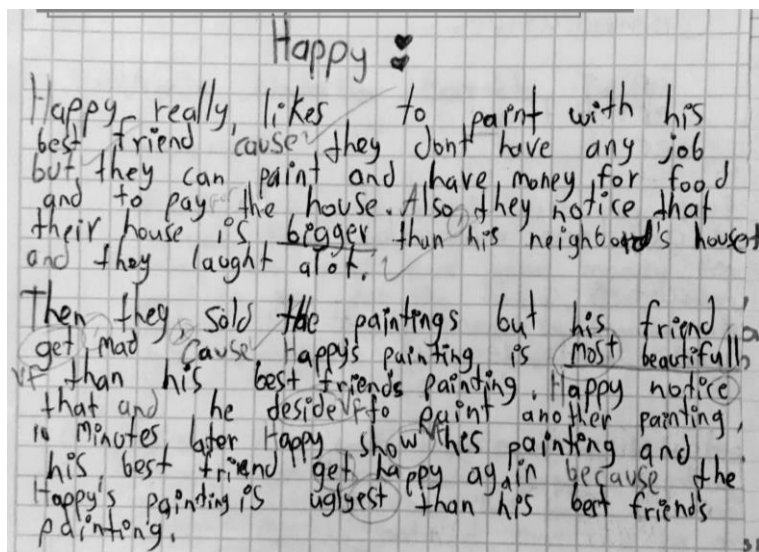 Happy
Happy really, likes to paint with his
best friend cause they dont have any job
but they can paint and have money for food
and to pay the house. Also they notice that
their house is bigger than his neighbord's house
and they laught alot.
Then they sold the paintings but his friend
get mad cause Happy's painting is most beautifull
than his best friends painting. Happy notice
that and he deside to paint another painting,
10 minutes later Happy show his painting and
his best friend get happy again because the
Happy's painting is uglyest than his best friend's
painting.